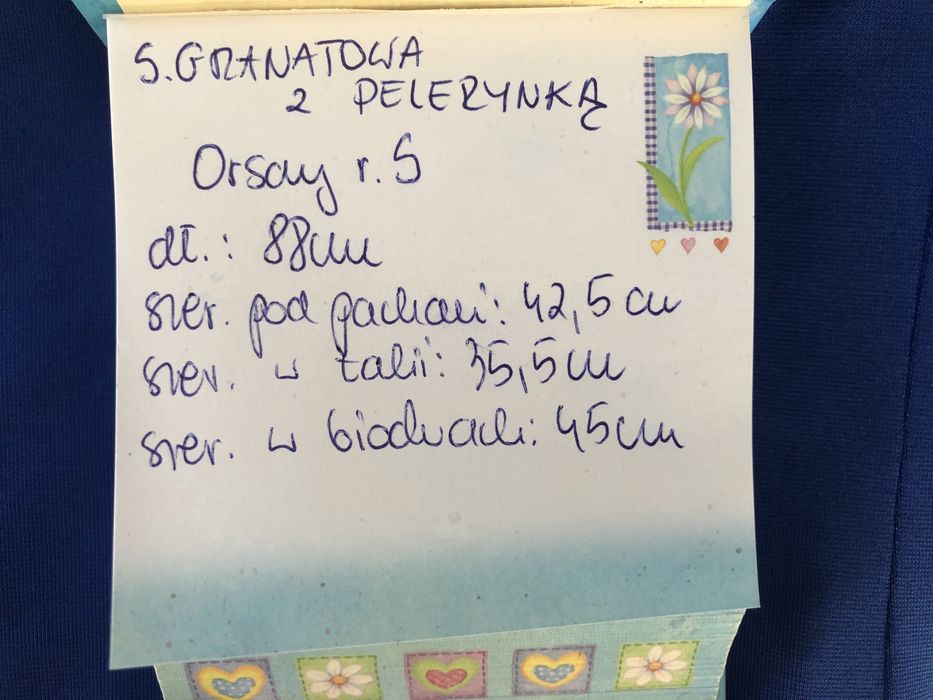 S. GRANATOWA
Z PELERYNKĄ
Orsay r. S
dł.: 88cm
szer. pod pachami: 42,5 cm
szer. w talii: 35,5cm
szer. w biodrach: 45cm